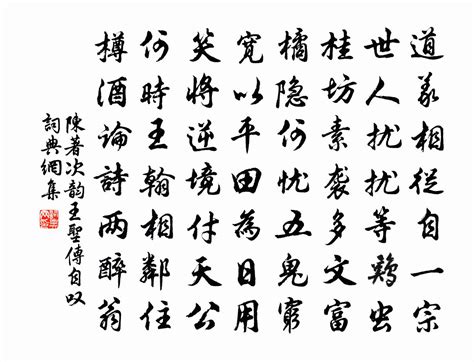 道义相從自一宗
世人扰扰等鷄虫
桂坊素襲多文富
橘隐何忧五鬼窮
寬以平田為日用
笑將逆境付天公
何時王翰相鄰住
樽酒論詩两醉翁
陳著次韵王聖傳自叹
詞典網集